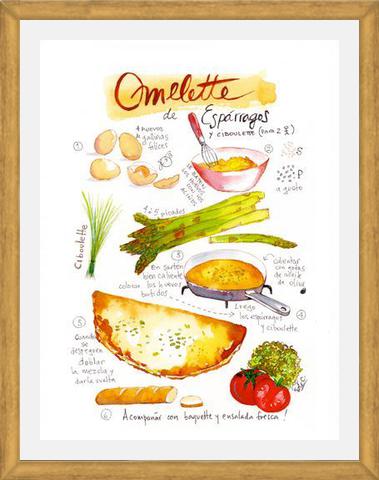 Omelette
de Espárragos
y ciboulette (para 2
1
4 huevos
de gallinas
felices
2
se baten
los huevos
con los
S
P
a gusto
Ciboulette
picados
3
En sartén
bien caliente
colocar los huevos
batidos
calientes
con gotas
de aceite
de oliva
Luego
los espárragos
y ciboulette
4
5
Cuando
se
despeguen
doblar
la mezcla y
darla vuelta
6 Acompañar con baguette y ensalada fresca!